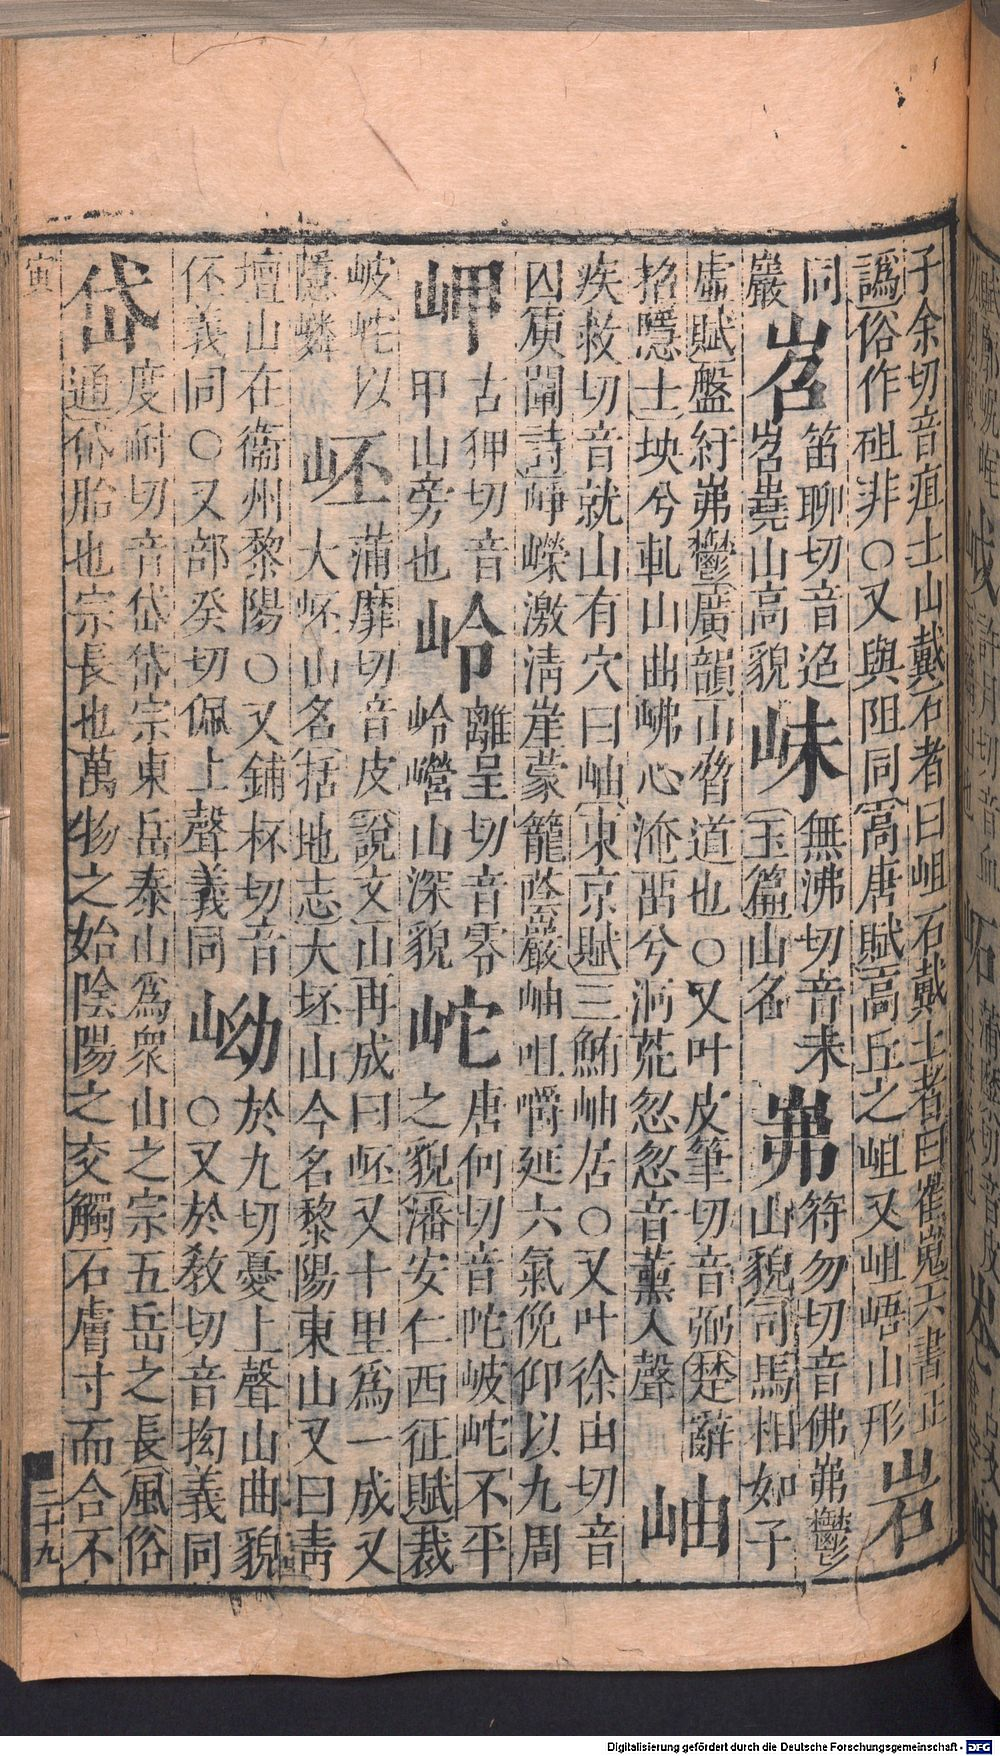 子余切音疽土山戴石者曰岨石戴土者曰崔嵬六書正
譌俗作砠非○又與阻同高唐賦高丘之岨又岨峿山形
岩
同
巖
岧
笛聊切音迢
岧嶤山高貌
無沸切音未
玉篇山名
岪
符勿切音佛岪鬱
山貌司馬相如子
虛賦盤紆岪鬱廣韻山脅道也○又叶皮筆切音弼楚辭
招隱士坱兮軋山曲岪心淹畱兮洞荒忽忽音薰入聲
岫
疾救切音就山有穴曰岫東京賦三鮪岫居○又叶徐由切音
囚庾闡詩崢嶸激淸崖蒙籠蔭巖岫咀嚼延六氣俛仰以九周
岬
古狎切音
甲山旁也
岭
離呈切音零
岭巆山深貌
岮
唐何切音陀岥岮不平
之貌潘安仁西征賦裁
岥岮以
隱嶙
岯
蒲靡切音皮說文山再成曰岯又十里爲一成又
大岯山名括地志大坯山今名黎陽東山又曰靑
壇山在衞州黎陽○又鋪杯切音
伾義同○又部癸切佩上聲義同
岰
於九切憂上聲山曲貌
○又於敎切音拗義同
岱
度耐切音岱岱宗東岳泰山爲衆山之宗五岳之長風俗
通岱胎也宗長也萬物之始陰陽之交觸石膚寸而合不
寅
二十九
Digitalisierung gefördert durch die Deutsche Forschungsgemeinschaft - DFG